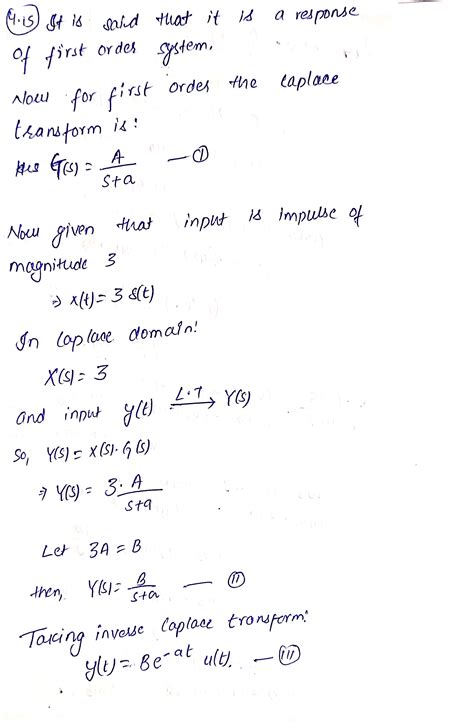 4.15 It is said that it is a response
of first order system.
Now for first order the laplace
transform is:
G(s) = A/(s+a) — (I)
Now given that input is impulse of
magnitude 3
⇒ x(t) = 3 δ(t)
In laplace domain:
X(s) = 3
and input y(t) —L.T→ Y(s)
So, Y(s) = X(s)·G(s)
⇒ Y(s) = 3·A/(s+a)
Let 3A = B
then, Y(s) = B/(s+a) — (II)
Taking inverse laplace transform:
y(t) = Be^-at u(t). — (III)